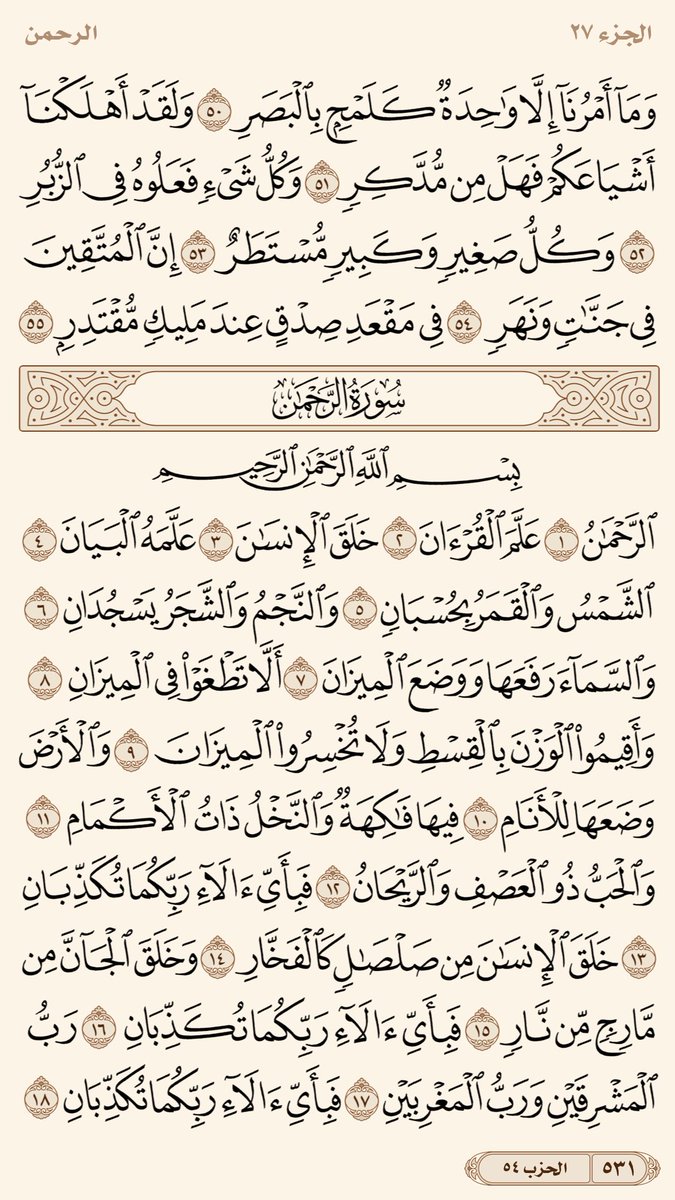 الجزء ٢٧
الرحمن
وَمَآ أَمْرُنَآ إِلَّا وَٰحِدَةٌ كَلَمْحٍۭ بِٱلْبَصَرِ ٥٠ وَلَقَدْ أَهْلَكْنَآ
أَشْيَاعَكُمْ فَهَلْ مِن مُّدَّكِرٍ ٥١ وَكُلُّ شَىْءٍ فَعَلُوهُ فِى ٱلزُّبُرِ
٥٢ وَكُلُّ صَغِيرٍ وَكَبِيرٍ مُّسْتَطَرٌ ٥٣ إِنَّ ٱلْمُتَّقِينَ
فِى جَنَّٰتٍ وَنَهَرٍ ٥٤ فِى مَقْعَدِ صِدْقٍ عِندَ مَلِيكٍ مُّقْتَدِرٍۭ ٥٥
سُورَةُ الرَّحْمَٰن
بِسْمِ ٱللَّهِ ٱلرَّحْمَٰنِ ٱلرَّحِيمِ
ٱلرَّحْمَٰنُ ١ عَلَّمَ ٱلْقُرْءَانَ ٢ خَلَقَ ٱلْإِنسَٰنَ ٣ عَلَّمَهُ ٱلْبَيَانَ ٤
ٱلشَّمْسُ وَٱلْقَمَرُ بِحُسْبَانٍ ٥ وَٱلنَّجْمُ وَٱلشَّجَرُ يَسْجُدَانِ ٦
وَٱلسَّمَآءَ رَفَعَهَا وَوَضَعَ ٱلْمِيزَانَ ٧ أَلَّا تَطْغَوْا۟ فِى ٱلْمِيزَانِ ٨
وَأَقِيمُوا۟ ٱلْوَزْنَ بِٱلْقِسْطِ وَلَا تُخْسِرُوا۟ ٱلْمِيزَانَ ٩ وَٱلْأَرْضَ
وَضَعَهَا لِلْأَنَامِ ١٠ فِيهَا فَٰكِهَةٌ وَٱلنَّخْلُ ذَاتُ ٱلْأَكْمَامِ ١١
وَٱلْحَبُّ ذُو ٱلْعَصْفِ وَٱلرَّيْحَانُ ١٢ فَبِأَىِّ ءَالَآءِ رَبِّكُمَا تُكَذِّبَانِ
١٣ خَلَقَ ٱلْإِنسَٰنَ مِن صَلْصَٰلٍ كَٱلْفَخَّارِ ١٤ وَخَلَقَ ٱلْجَآنَّ مِن
مَّارِجٍ مِّن نَّارٍ ١٥ فَبِأَىِّ ءَالَآءِ رَبِّكُمَا تُكَذِّبَانِ ١٦ رَبُّ
ٱلْمَشْرِقَيْنِ وَرَبُّ ٱلْمَغْرِبَيْنِ ١٧ فَبِأَىِّ ءَالَآءِ رَبِّكُمَا تُكَذِّبَانِ ١٨
٥٣١ الحزب ٥٤